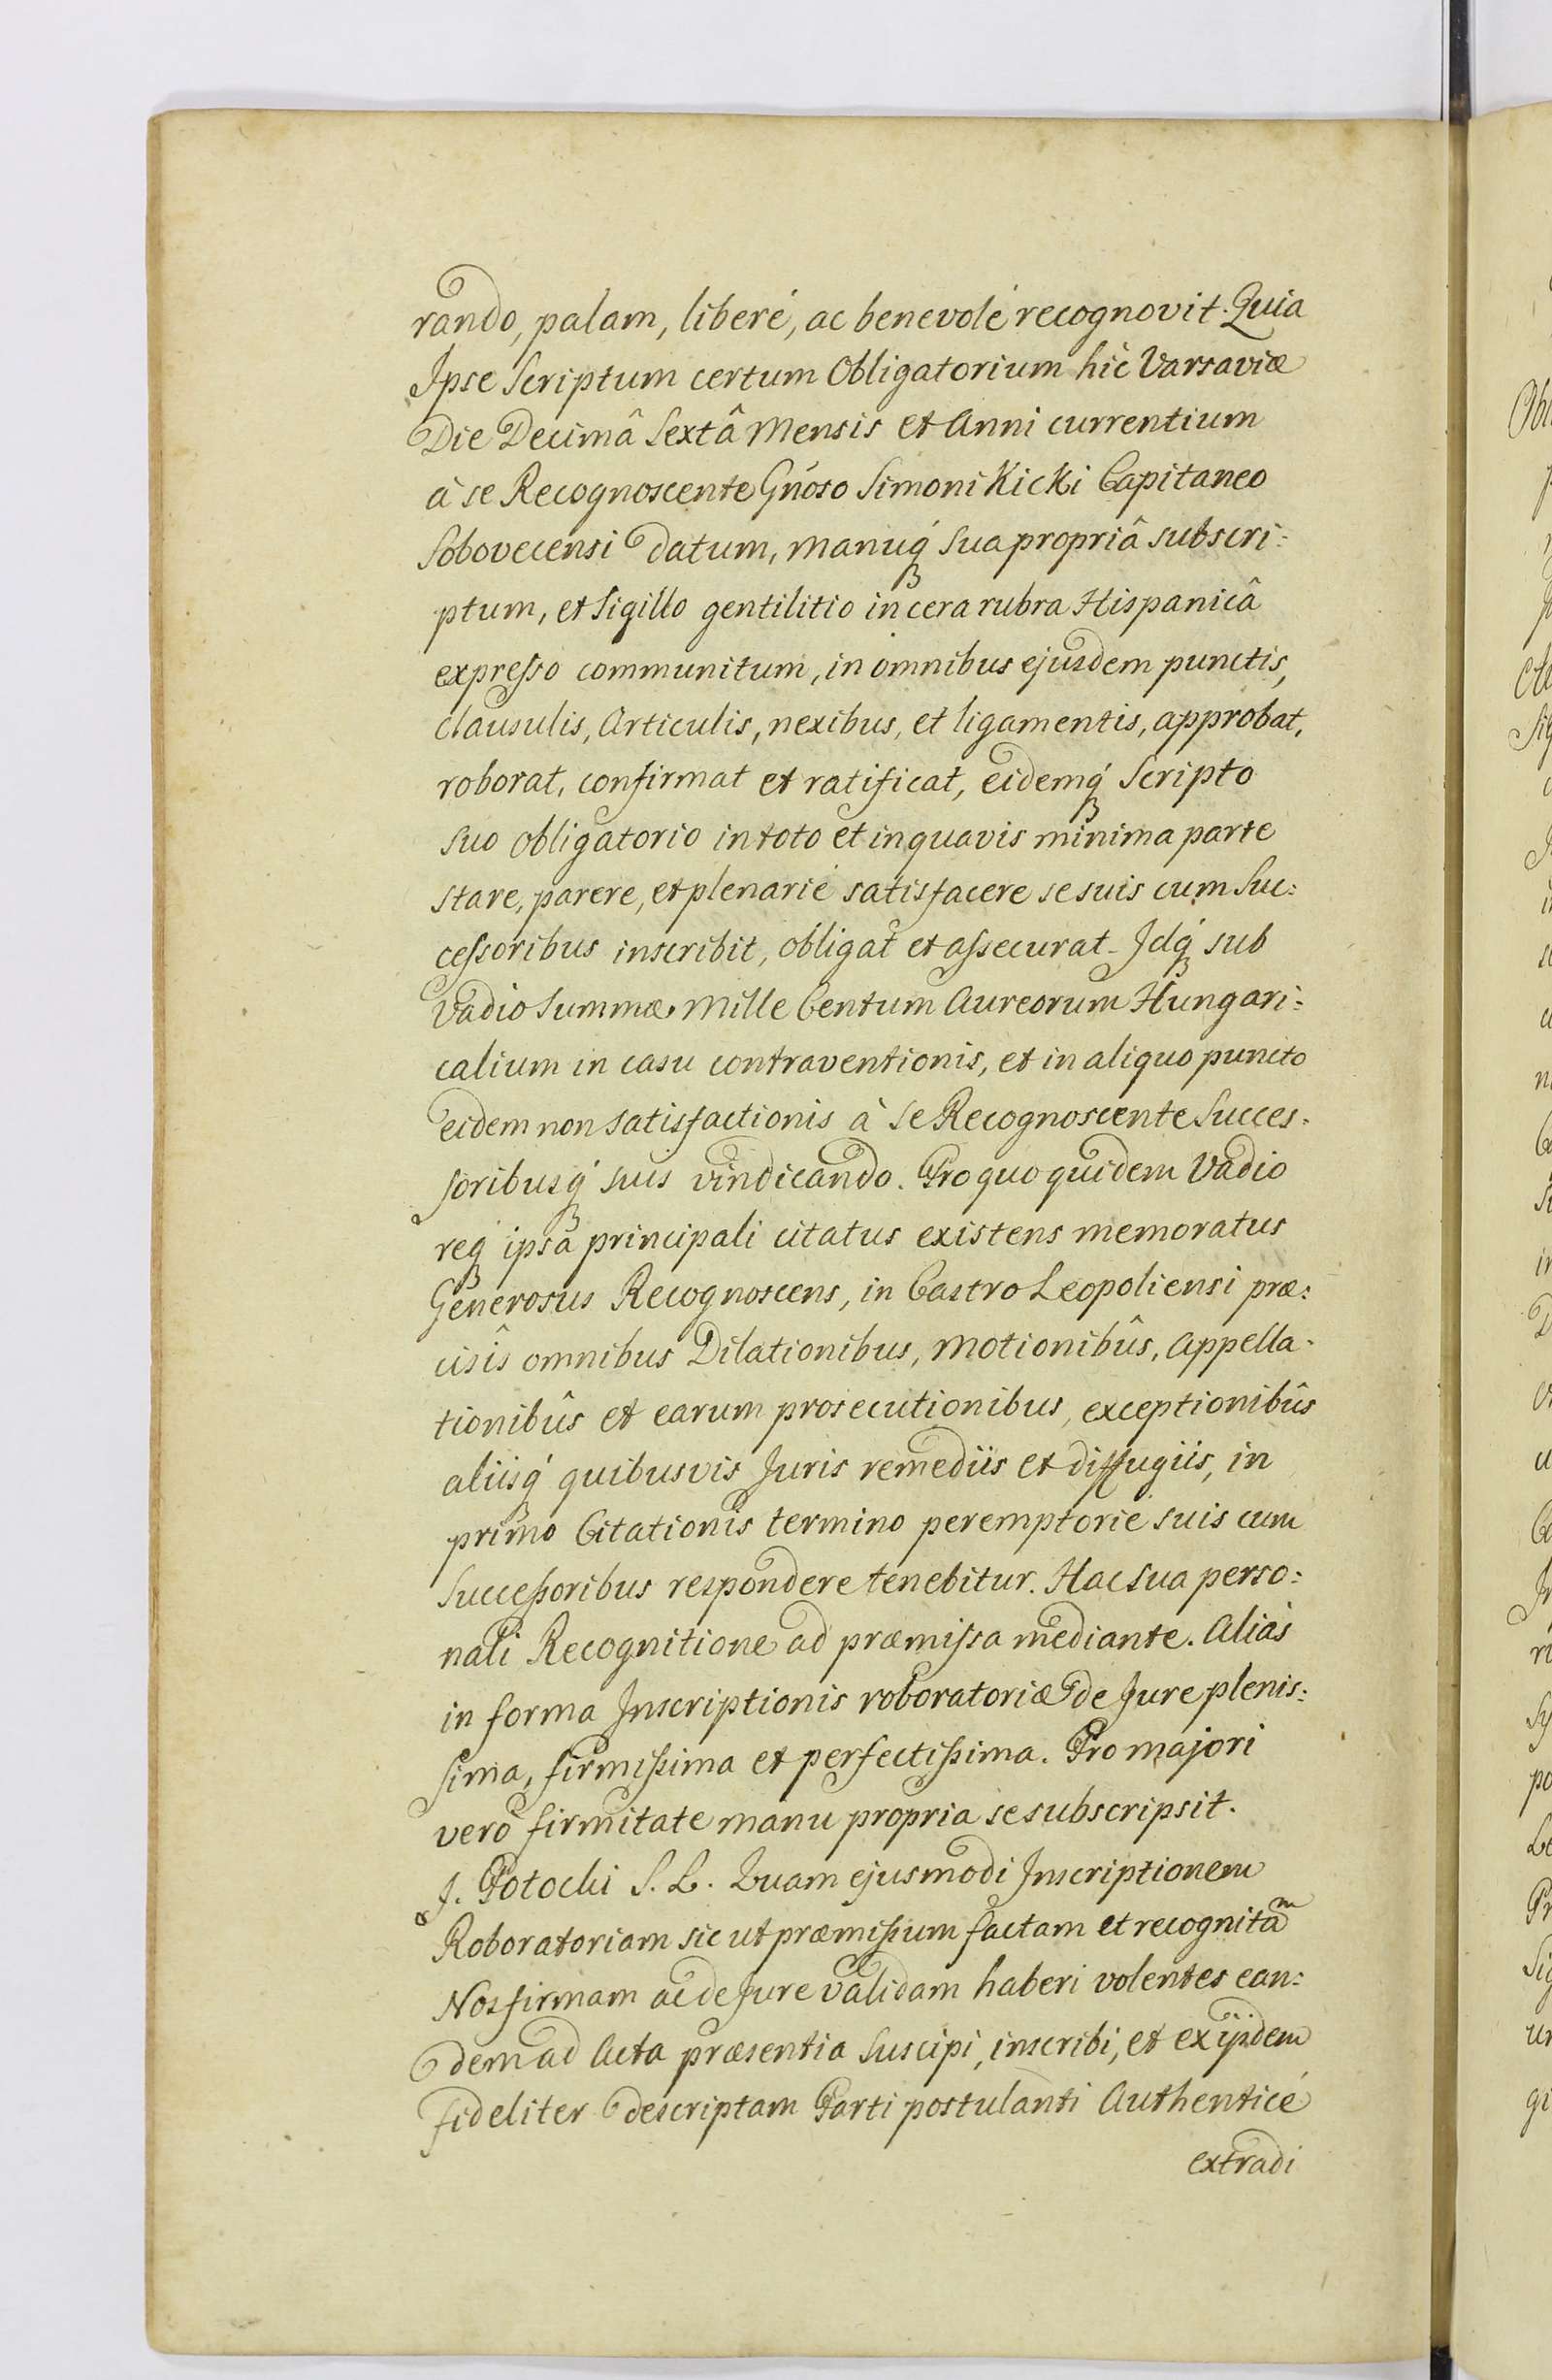 rando, palam, liberé, ac benevolé recognovit. Quia
Ipse Scriptum certum Obligatorium hìc Varsaviæ
Die Decimâ Sextâ Mensis et Anni currentium
à se Recognoscente Gnóso Simoni Kicki Capitaneo
Sobovecensi datum, manuq́ sua propriâ subscri:
ptum, et Sigillo gentilitio in cera rubra Hispanicâ
expresso communitum, in omnibus ejusdem punctis,
Clausulis, Articulis, nexibus, et ligamentis, approbat,
roborat, confirmat et ratificat, eidemq́ Scripto
suo Obligatorio in toto et in quavis minima parte
stare, parere, et plenarié satisfacere se suis cum Suc:
cessoribus inscribit, obligat et assecurat. Idq́ sub
Vadio Summæ Mille Centum Aureorum Hungari:
calium in casu contraventionis, et in aliquo puncto
eidem non satisfactionis à Se Recognoscente Succes.
soribusq́ suis vindicando. Pro quo quidem Vadio
req́ ipsâ principali citatus existens memoratus
Generosus Recognoscens, in Castro Leopoliensi præ:
cisîs omnibus Dilationibus, Motionibûs, Appella.
tionibûs et earum prosecutionibus, exceptionibûs
aliisq́ quibusvis Juris remediis et diffugiis, in
primo Citationis termino peremptorie suis cum
Successoribus respondere tenebitur. Hac sua perso:
nali Recognitione ad præmissa mediante. Aliàs
in forma Inscriptionis roboratoriæ de Jure plenis:
sima, firmissima et perfectissima. Pro majori
verò firmitate manu propria se subscripsit.
J. Potocki S. L. Quam ejusmodi Inscriptionem
Roboratoriam sic ut præmissum factam et recognitam
Nos firmam ac de Jure validam haberi volentes ean:
dem ad Acta præsentia Suscipi, inscribi, et ex ijsdem
fideliter descriptam Parti postulanti Authenticé
extradi